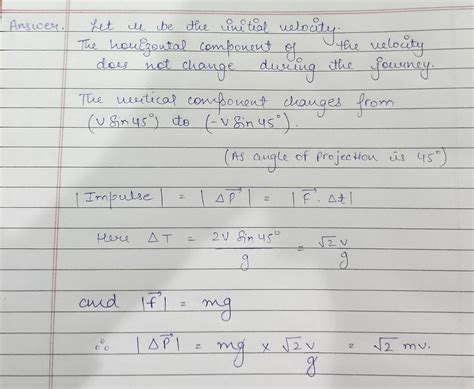 Answer. Let u be the initial velocity.
The horizontal component of the velocity
does not change during the journey.
The vertical component changes from
(v Sin 45°) to (-v Sin 45°).
(As angle of projection is 45°)
|Impulse| = |ΔP⃗| = |F⃗. Δt|
Here ΔT = 2v Sin 45° / g = √2 v / g
and |f⃗| = mg
∴ |ΔP⃗| = mg × √2 v / g = √2 mv.